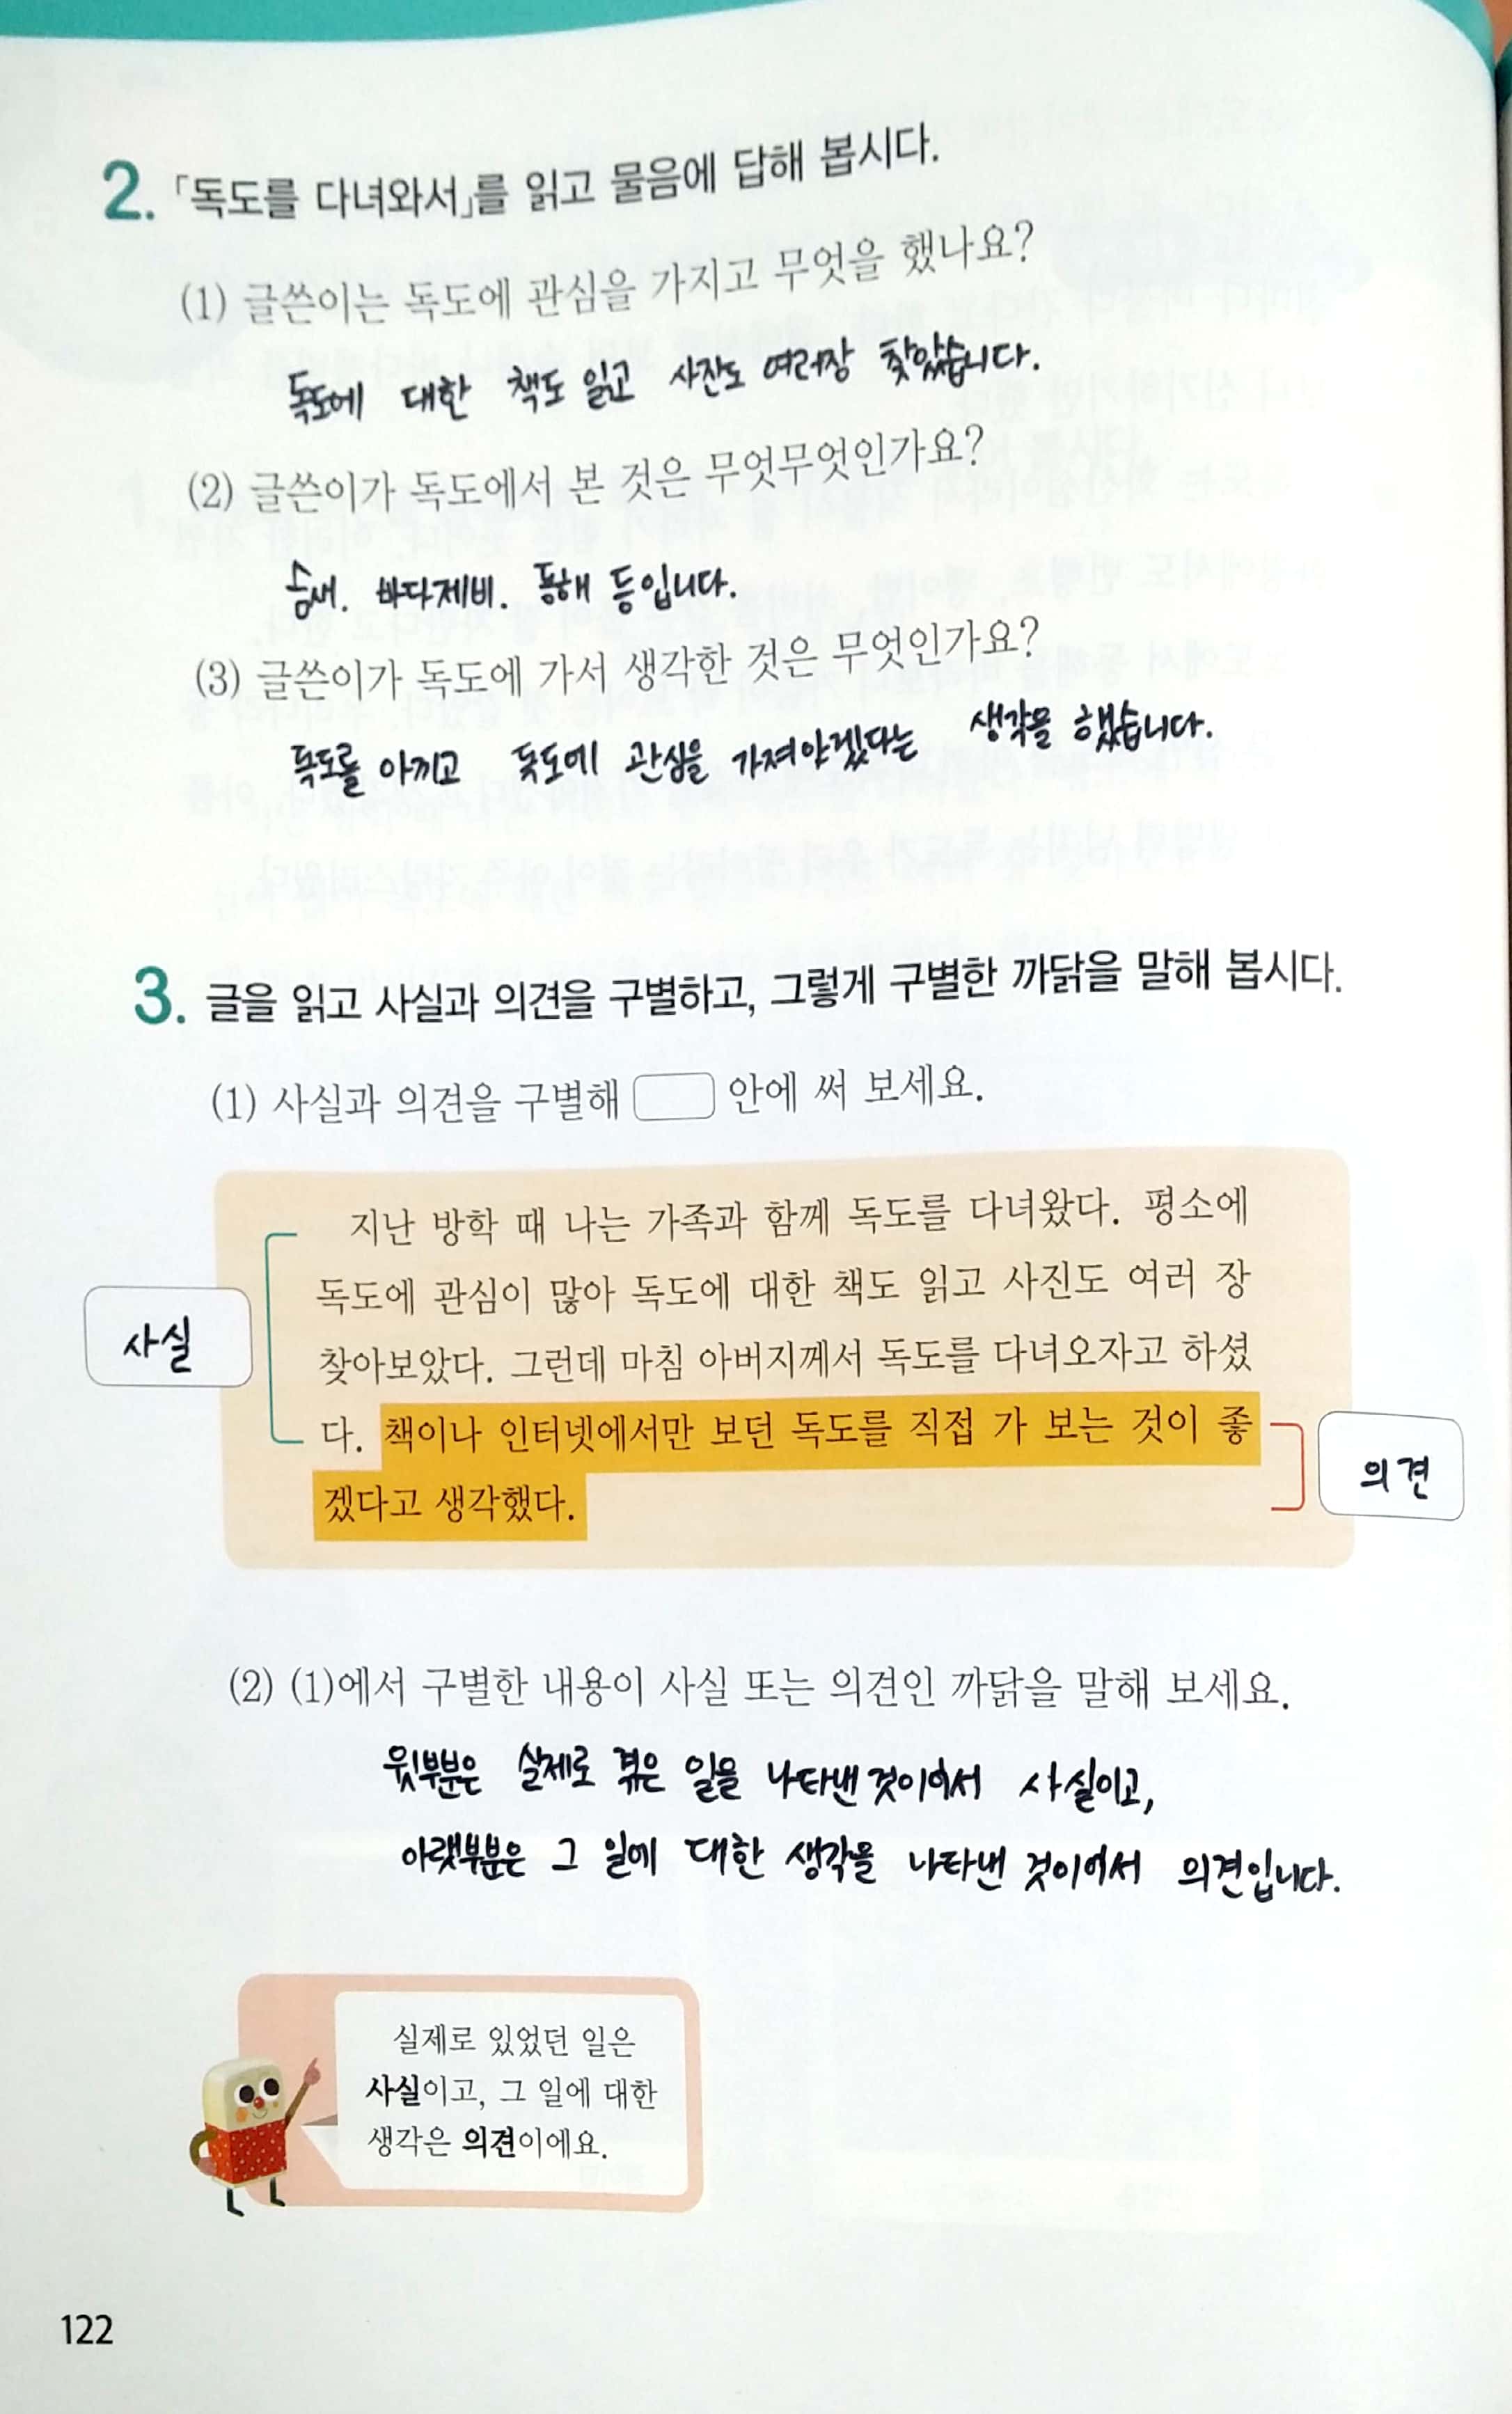 2. 「독도를 다녀와서」를 읽고 물음에 답해 봅시다.
(1) 글쓴이는 독도에 관심을 가지고 무엇을 했나요?
독도에 대한 책도 읽고 사진도 여러장 찾았습니다.
(2) 글쓴이가 독도에서 본 것은 무엇무엇인가요?
슴새. 바다제비. 동해 등입니다.
(3) 글쓴이가 독도에 가서 생각한 것은 무엇인가요?
독도를 아끼고 독도에 관심을 가져야겠다는 생각을 했습니다.
3. 글을 읽고 사실과 의견을 구별하고, 그렇게 구별한 까닭을 말해 봅시다.
(1) 사실과 의견을 구별해 안에 써 보세요.
지난 방학 때 나는 가족과 함께 독도를 다녀왔다. 평소에
독도에 관심이 많아 독도에 대한 책도 읽고 사진도 여러 장
사실
찾아보았다. 그런데 마침 아버지께서 독도를 다녀오자고 하셨
다. 책이나 인터넷에서만 보던 독도를 직접 가 보는 것이 좋
의견
겠다고 생각했다.
(2) (1)에서 구별한 내용이 사실 또는 의견인 까닭을 말해 보세요.
윗부분은 실제로 겪은 일을 나타낸 것이어서 사실이고,
아랫부분은 그 일에 대한 생각을 나타낸 것이어서 의견입니다.
실제로 있었던 일은
사실이고, 그 일에 대한
생각은 의견이에요.
122